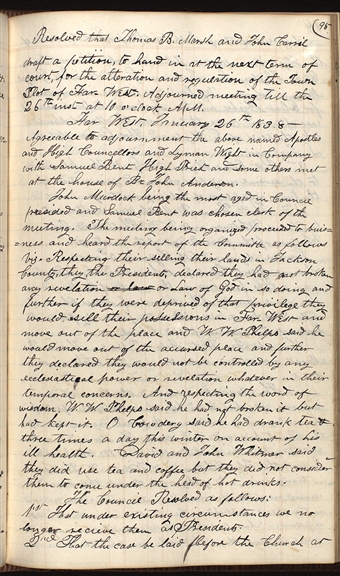 95
Resolved that Thomas B. Marsh and John Carril
draft a petition, to hand in at the next term of
court, for the alteration and regulation of the Town
Plot of Far West. Adjourned meeting till the
26th inst at 10 o'clock A.M.
Far West, January 26th 1838—
Agreeable to adjournment the above named Apostles
and High Councellors and Lyman Wight in Company
with Samuel Bent High Priest and some others met
at the house of Br John Anderson.
John Murdock being the most aged in Council
presided and Samuel Bent was chosen clerk of the
meeting. The meeting being organized proceded to busi-
ness and heard the report of the Committe as follows
viz. Respecting their selling their lands in Jackson
County, they, the Presidents, declared they had not broken
any revelation or Law of God in so doing and
further if they were deprived of that privilege they
would sell their possessions in Far West and
move out of the place and W. W. Phelps said he
would move out of the accursed place and further
they declared they would not be controlled by any
ecclesiastical power or revelation whatever in their
temporal concerns. And respecting the word of
wisdom, W. W. Phelps said he had not broken it but
had kept it. O Cowdery said he had drank tea
three times a day this winter on account of his
ill health. David and John Whitmer said
they did use tea and coffee but they did not consider
them to come under the head of hot drinks.
The Council Resolved as follows:
1st That under existing circumstances we no
longer recieve them as Presidents.
2nd That the case be laid before the Church at